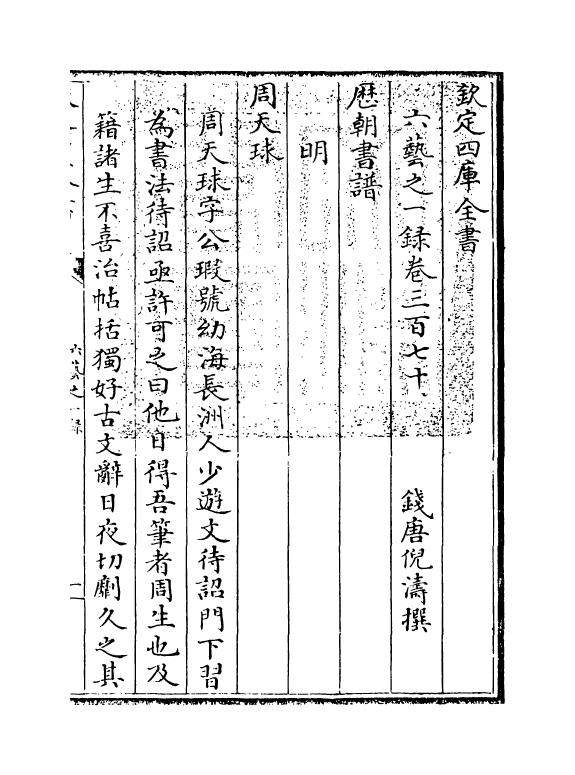 欽定四庫全書
六藝之一録卷三百七十
錢唐倪濤撰
歴朝書譜
明
周天球
周天球字公瑕號幼海長洲人少遊文待詔門下習
為書法待詔亟許可之曰他日得吾筆者周生也及
籍諸生不喜治帖括獨好古文辭日夜切劘久之其
六藝之一録
一